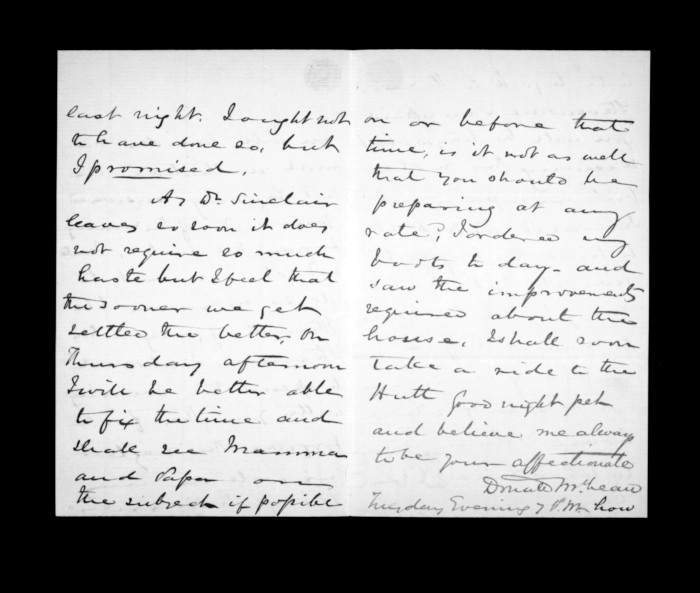 last night. I ought not
to have done so, but
I promised.
As Dr. Sinclair
leaves so soon it does
not require so much
haste but I feel that
the sooner we get
settled the better, on
Thursday afternoon
I will be better able
to fix the time and
shall see Mamma
and Papa on
the subject if possible
on or before that
time, is it not as well
that you should be
preparing at any
rate? I ordered my
boots to day - and
saw the improvements
required about the
house, I shall soon
take a ride to the
Hutt Good night pet
and believe me always
to be your affectionate
Donald McLean
Tuesday Evening 7 P.M.